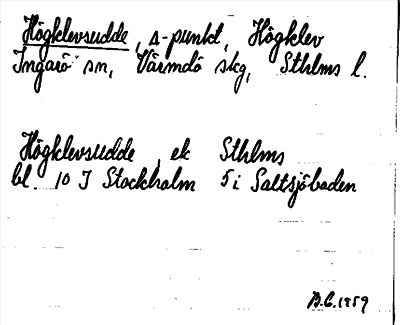 Högklevsudde, s-punkt, Högklev
Ingarö sn, Värmdö skg, Sthlms l.
Högklevsudde, ek Sthlms
bl. 10 I Stockholm 5 i Saltsjöbaden
B.C. 1959